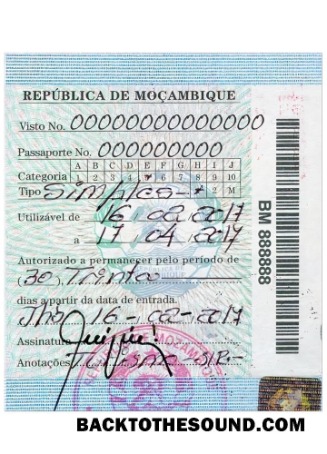 REPÚBLICA DE MOÇAMBIQUE
Visto No. 00000000000000
Passaporte No. 000000000
A B C D E F G H I J
Categoria 1 2 3 4 6 7 8 9 10
Tipo Simples 2 M
Utilizável de 16 02 2017
a 17 04 2017
Autorizado a permanecer pelo período de
30, Trinta
dias a partir da data de entrada.
16-02-2017
Assinatura
Anotações
BM 888888
BACKTOTHESOUND.COM